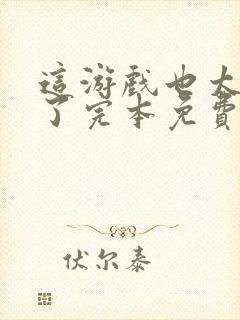 這游戲也太
了完本免費
伏尔泰